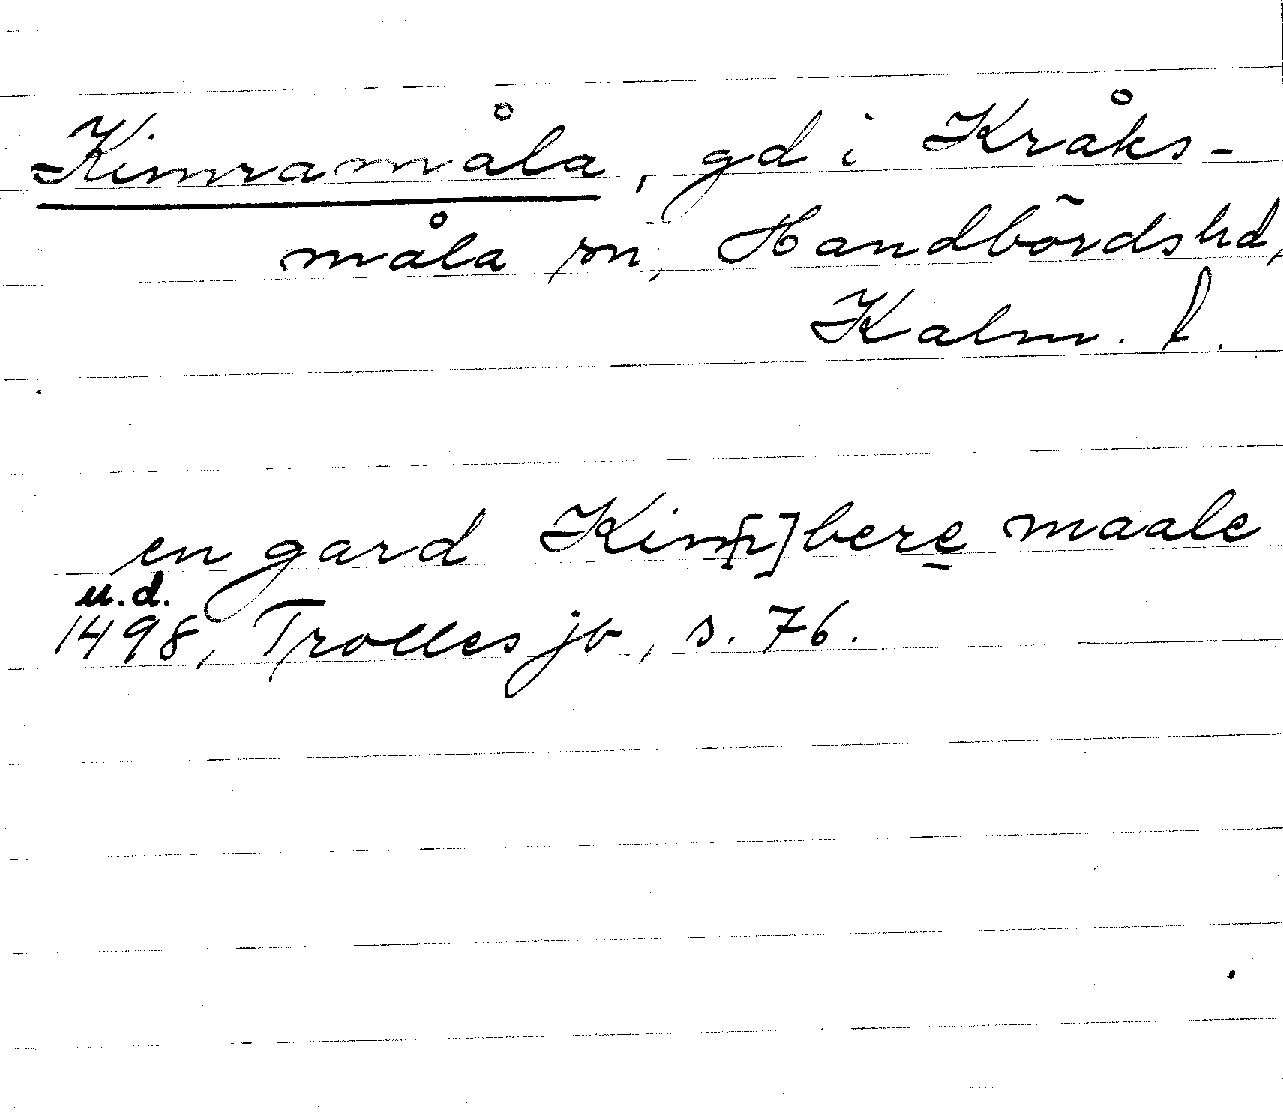 Kimramåla, gd i Kråks-
måla sn, Handbörds hd,
Kalm. l.
en gard Kim[n]bere maale
u.d.
1498, Trolles jb, s. 76.